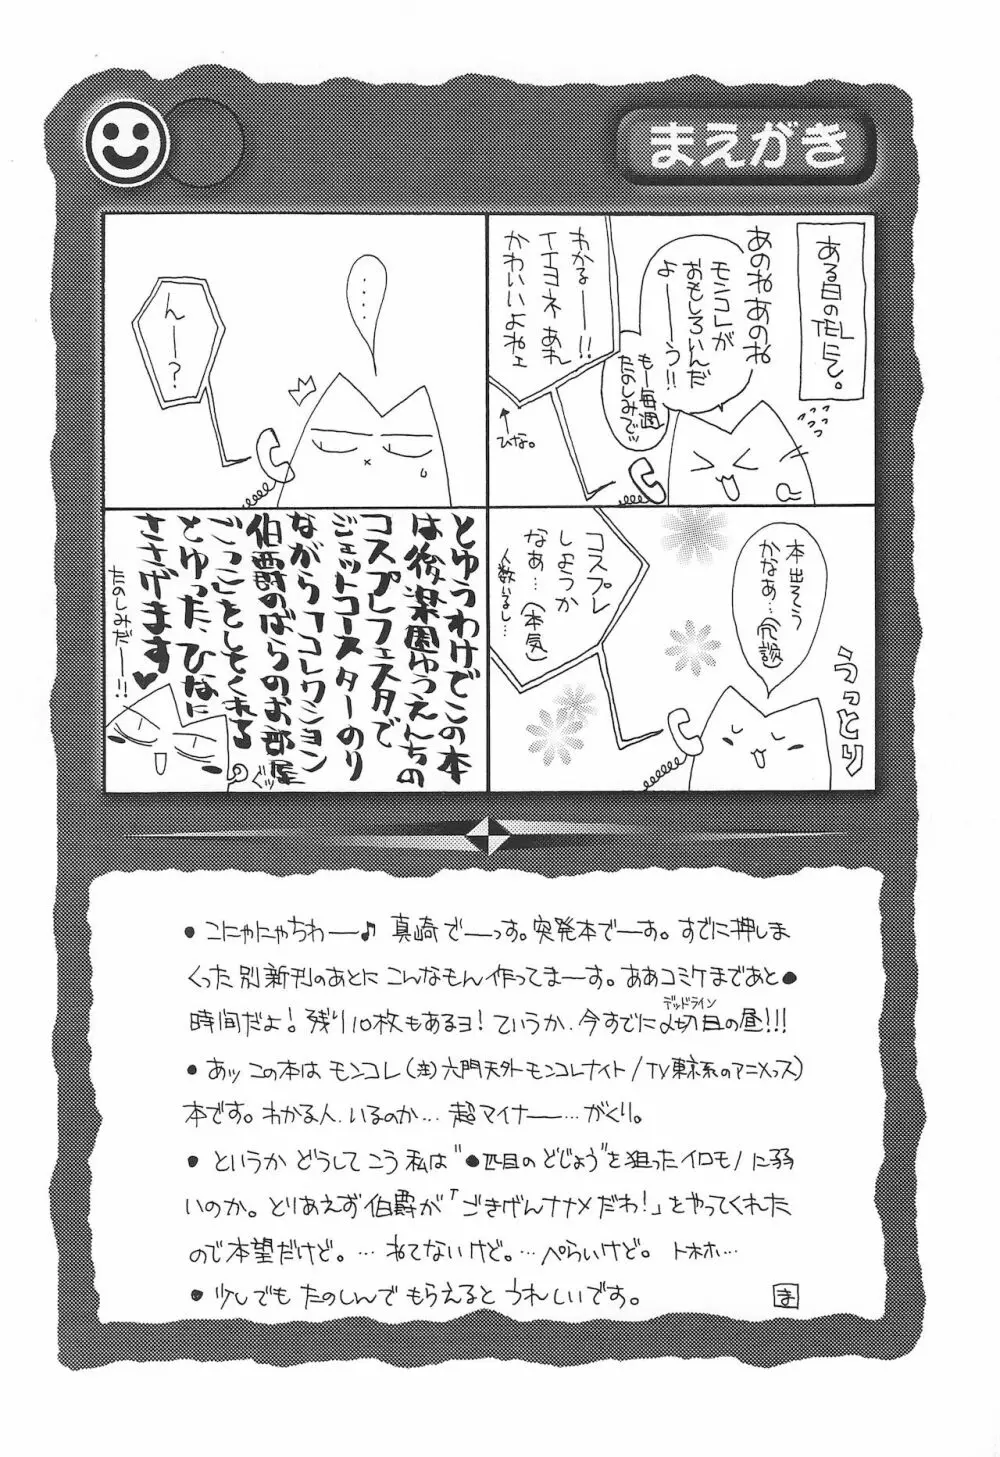 まえがき
ある日のTELにて。
あのねあのね
モンコレが
おもしろいんだ
よーーう!!
もー毎週
たのしみでッ
わかるーー!!
イイヨネ あれ
かわいいよねェ
ひな。
本出そう
かなぁ…(冗談)
うっとり
コスプレ
しようか
なぁ…(本気)
人数いるし…
……
んー?
とゆうわけでこの本
は後楽園ゆうえんちの
コスプレフェスタで
ジェットコースターのり
ながら「コレクション
伯爵のばらのお部屋
ごっこ」をしてくれる
とゆった、ひなに
ささげます♥
たのしみだーー!!
グッ
●こにゃにゃちわーー♪ 真崎でーっす。突発本でーす。すでに押しま
くった別新刊のあとにこんなもん作ってまーす。ああコミケまであと●
時間だよ!残り10枚もあるヨ!ていうか、今すでに〆切日の昼!!!
デッドライン
●あッ この本は モンコレ(注)六門天外モンコレナイト/TV東京系のアニメっス)
本です。わかる人、いるのか… 超マイナーー…がくり。
●というか どうして こう 私は"●匹目のどじょう"を狙ったイロモノに弱
いのか。とりあえず伯爵が「ごきげんナナメだわ!」をやってくれた
ので本望だけど。…ねてないけど。…ぺらいけど。トホホ…
●少しでも たのしんで もらえると うれしいです。
ま